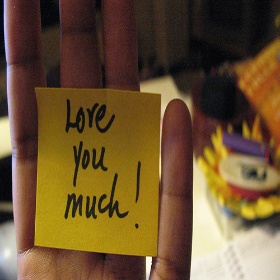 Love
you
much!